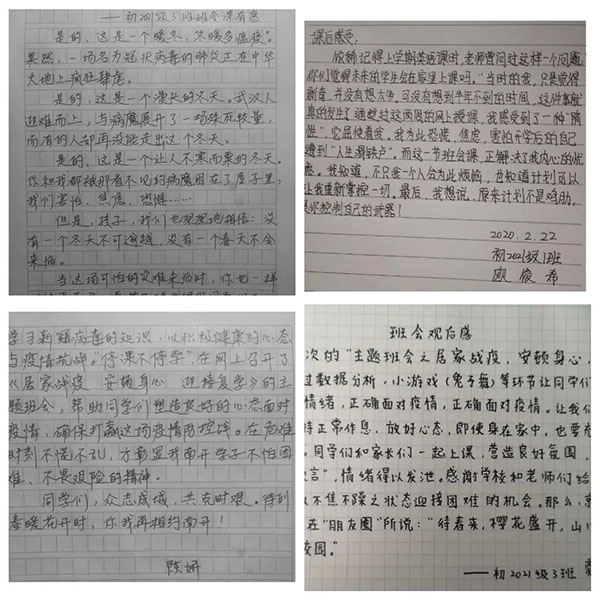 ——初2021级3班班会课有感
是的，这是一个暖冬，冬暖多瘟疫。
果然，一场名为冠状病毒的肺炎正在中华
大地上疯狂肆虐。
是的，这是一个漫长的冬天。武汉人
迎难而上，与病魔展开了一场殊死较量，
而有的人却再没能走出这个冬天。
是的，这是一个让人不寒而栗的冬天。
你和我都被那看不见的病魔困在了屋子里，
我们害怕、焦虑、恐惧……
但是，孩子，我们也现现地相信：没
有一个冬天不可逾越，没有一个春天不会
来临。
当这场可怕的灾难来临时，你也一样
课后感受：
依稀记得上学期英语课时，老师曾问过这样一个问题“
你们觉得未来的学生会在家里上课吗。”当时的我，只是觉得
新奇，并没有想太多，可没有想到半年不到的时间，这件事就
真的发生了通过对这两周的网上授课，我感受到了一种“隋
性”，它屈使着我，我为此恐慌，焦虑，害怕开学后的自己
遭到“人生滑铁卢”。而这一节班会课，正解决了我内心的忧
虑。我知道，不只我一个人会为此烦恼，也知道计划可以
让我重新掌控一切。最后，我想说，原来计划不是鸡肋，
是你控制自己的武器！
2020.2.22
初2021级1班
欧俊希
学习新冠病毒的知识，以积极健康的心态
与疫情抗争。“停课不停学”在网上召开了
《居家战疫 安顿身心 迎接复学》的主
题班会，帮助同学们塑造良好的心态面对
疫情，确保打赢这场疫情防控战。在危难
时刻不慌不乱，才彰显我南开学子不怕困
难、不畏艰险的精神。
同学们，众志成城，共克时艰。待到
春暖花开时，你我再相约南开！
陈妍
班会观后感
次的“主题班会之居家战疫，安顿身心，
过数据分析，小游戏（兔子舞）等环节让同学们
情绪，正确面对疫情，正确面对疫情。让我们
持正常作息，放好心态，即使身在家中，也要
。同学们和家长们一起上课，营造良好氛围，
言”，情绪得以发泄。感谢学校和老师们给
以不焦不躁之状态迎接困难的机会。那么，
在“朋友圈”所说：“待春来，樱花盛开，山
校园。”
——初2021级3班